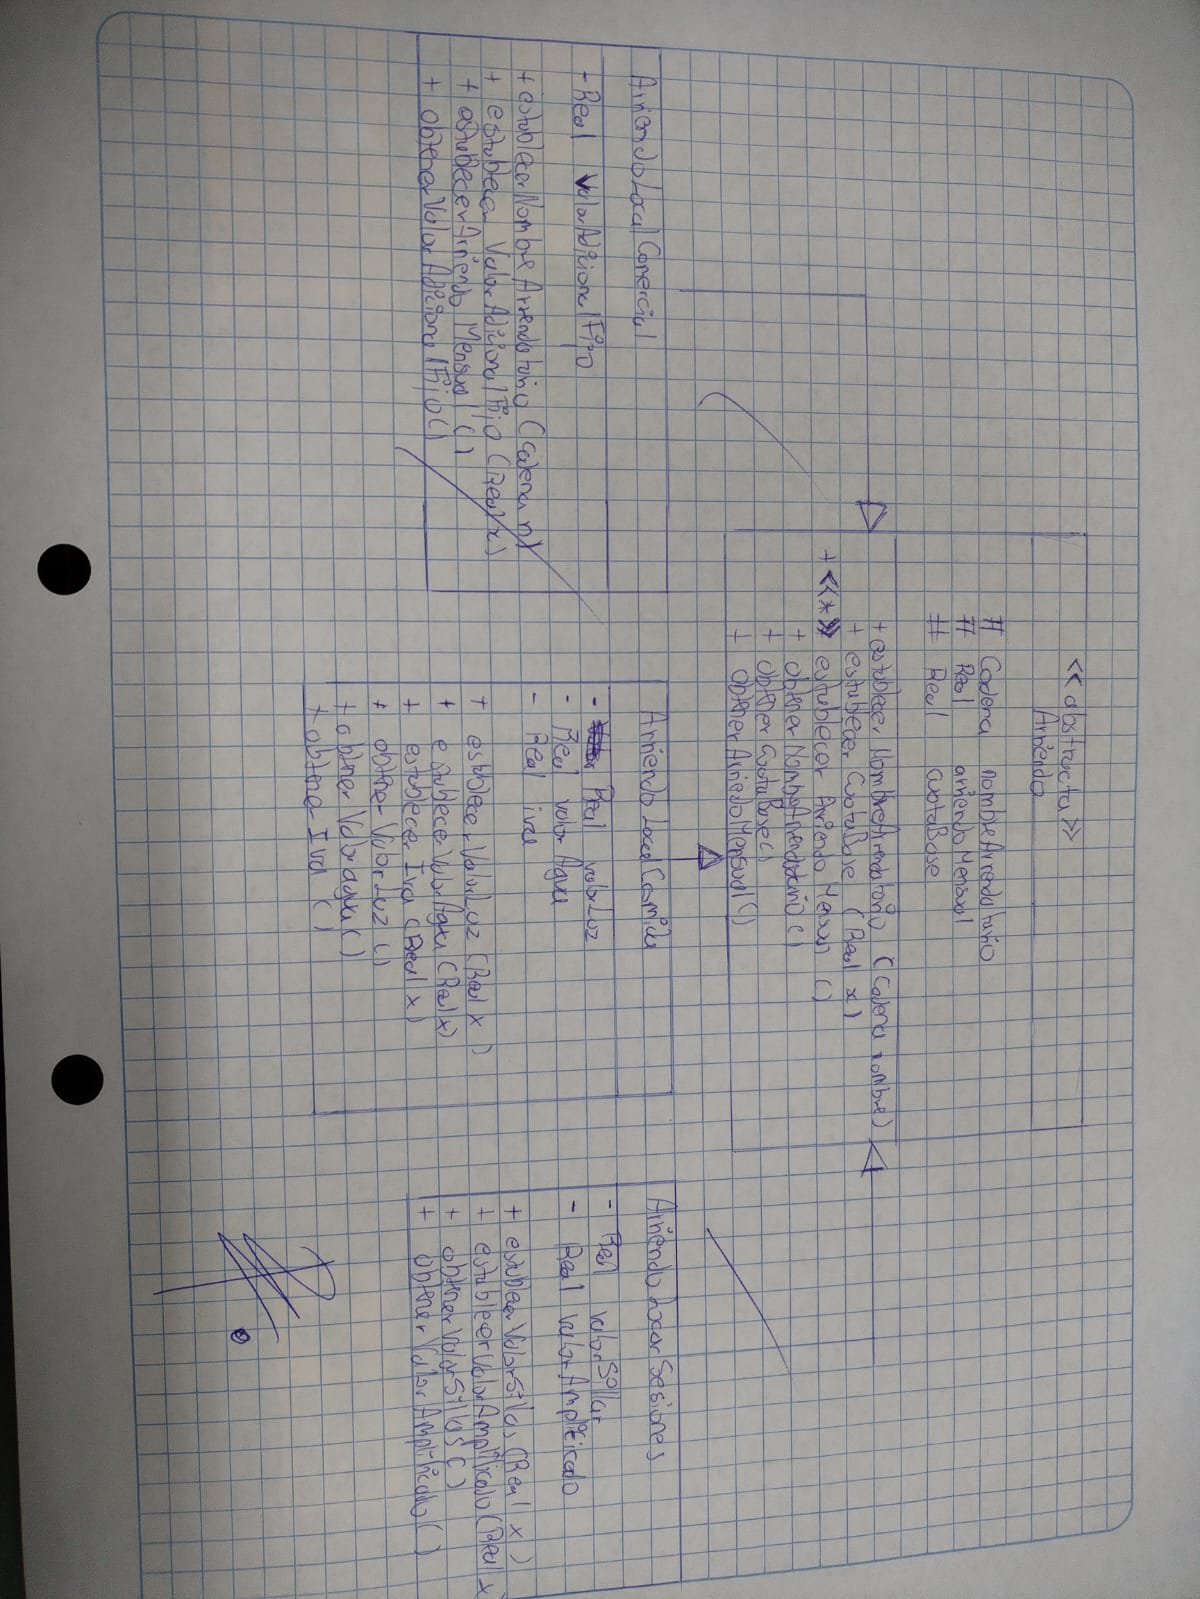 <<abstracta>>
Arriendo
# Cadena nombreArrendatario
# Real arriendoMensual
# Real cuotaBase
+ establecer NombreArrendatario (Cadena nombre)
+ establecer CuotaBase (Real x)
+ <<*>> establecer Arriendo Mensual ()
+ obtener NombreArrendatario ()
+ obtener CuotaBase ()
+ obtener ArriendoMensual ()
Arriendo Local Comercial
- Real ValorAdicional Fijo
+ establecer Nombre Arrendatario (Cadena n)
+ establecer Valor Adicional Fijo (Real x)
+ establecer Arriendo Mensual ()
+ obtener Valor Adicional Fijo ()
Arriendo Local Comida
- Real valorLuz
- Real valor Agua
- Real iva
+ establecer ValorLuz (Real x)
+ establecer ValorAgua (Real x)
+ establecer Iva (Real x)
+ obtener Valor Luz ()
+ obtener Valor agua ()
+ obtener Iva ()
Arriendo Local Sesiones
- Real valor
- Real valor Amplificado
+ establecer ValorSillas (Real x)
+ establecer Valor Amplificado (Real x
+ obtener ValorSillas ()
+ obtener Valor Amplificado ()